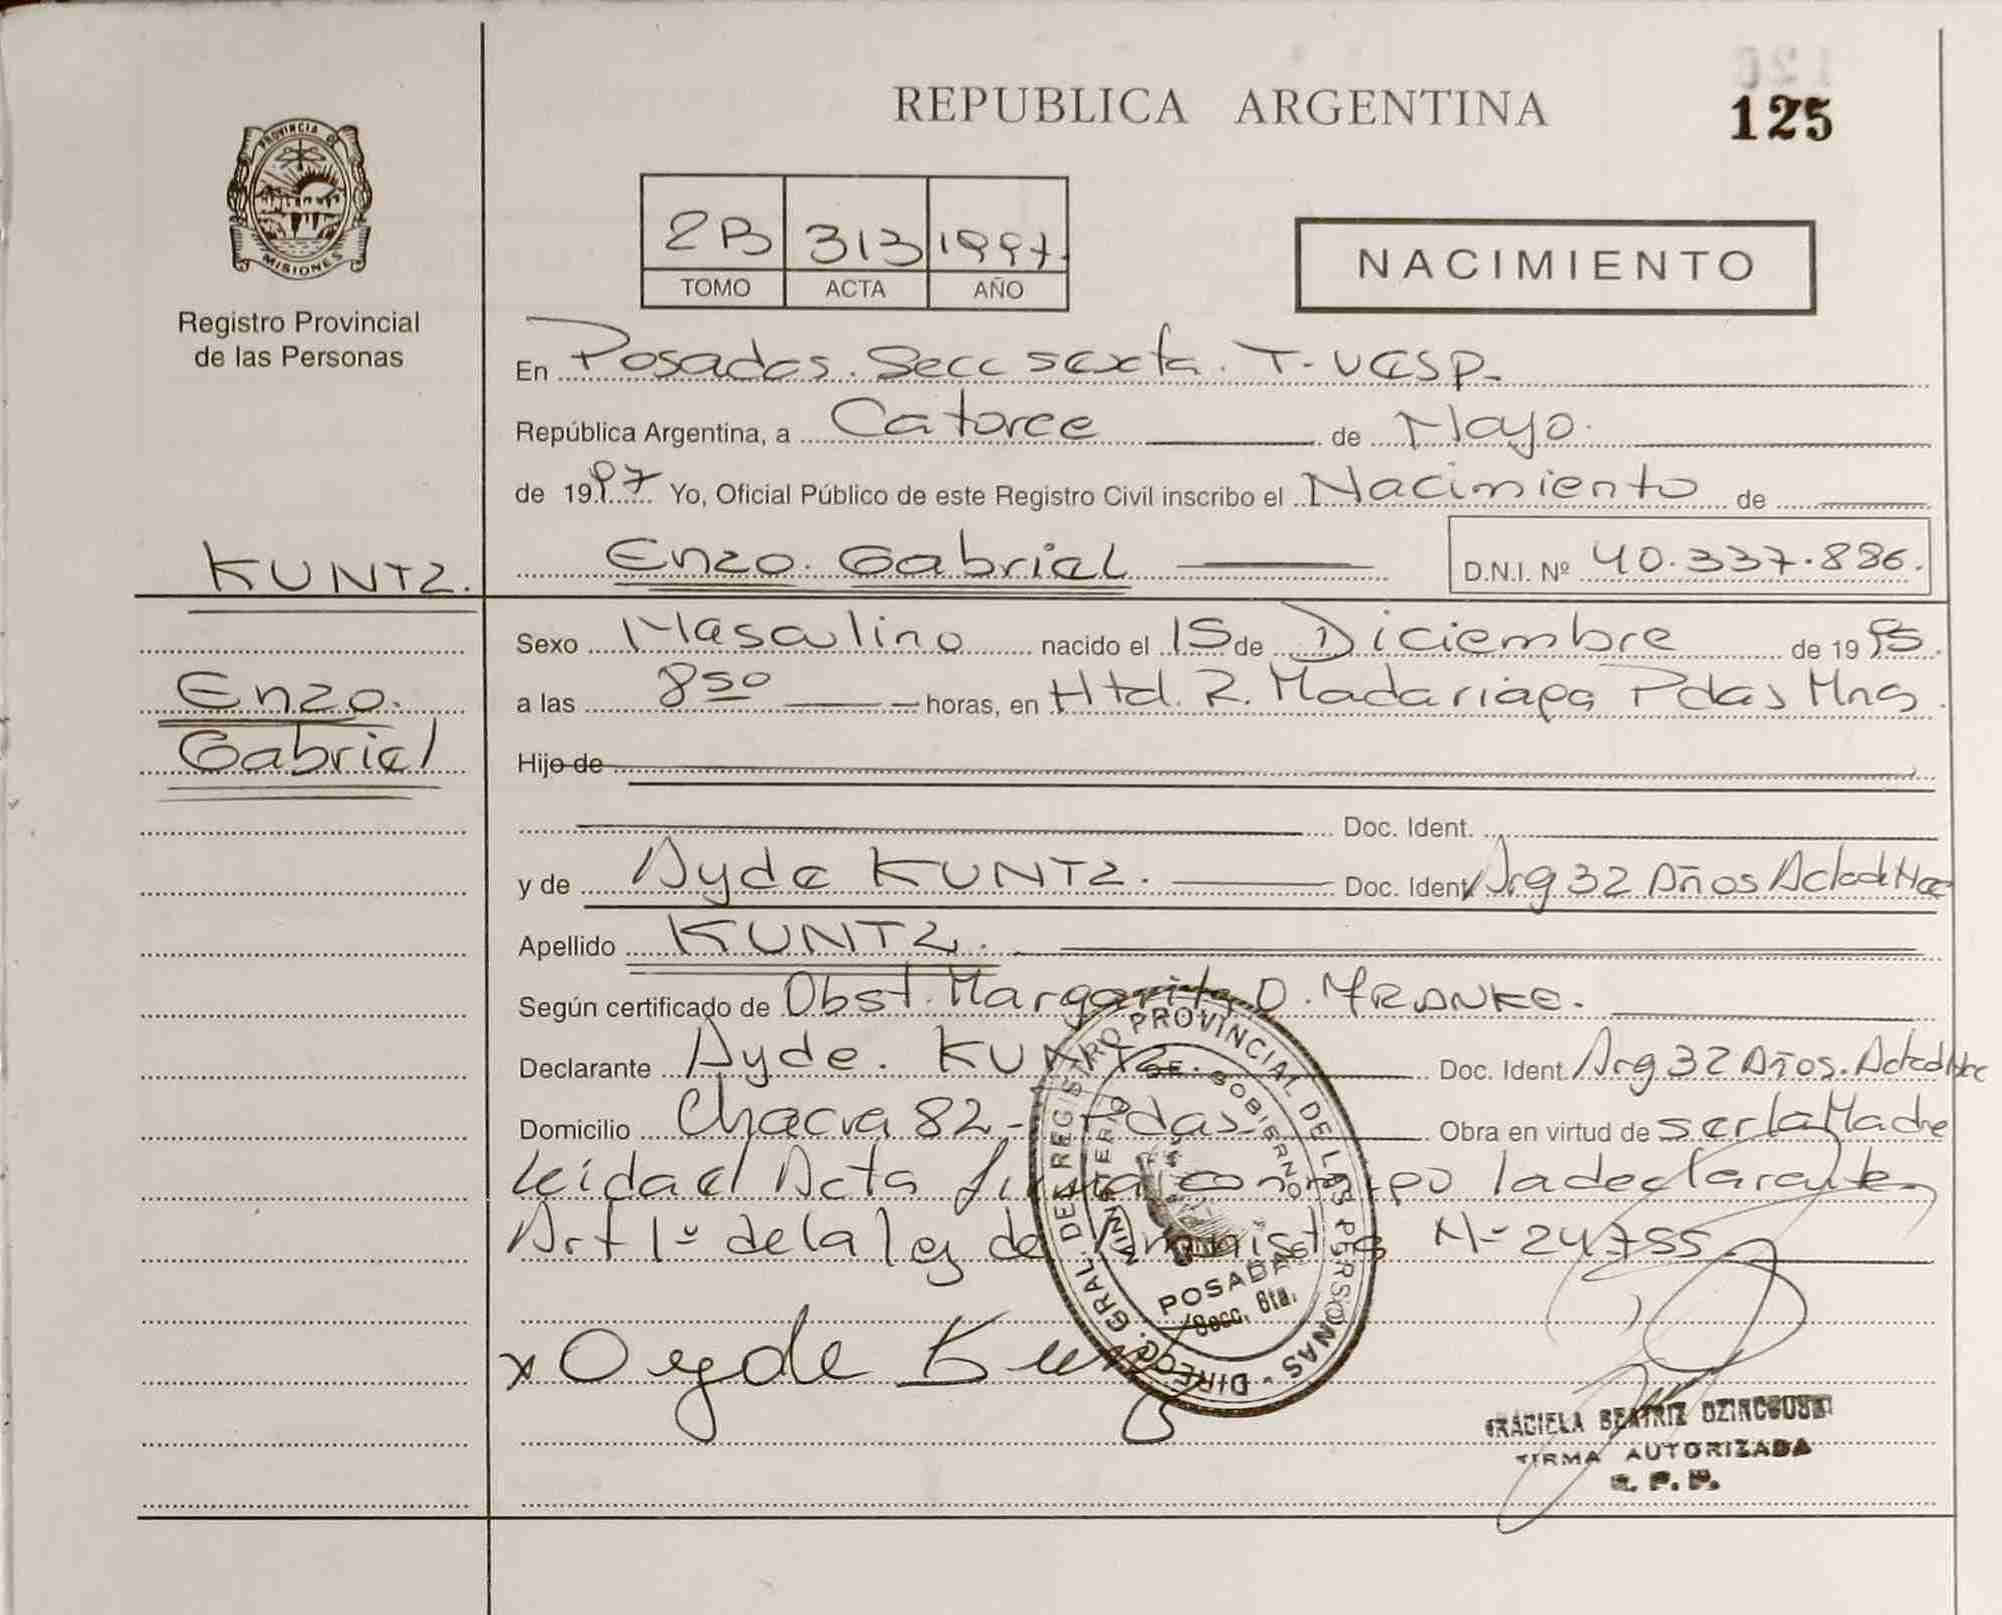 125
REPUBLICA ARGENTINA
PROVINCIA DE
MISIONES
Registro Provincial
de las Personas
2B 313 1997
TOMO ACTA AÑO
NACIMIENTO
En Posadas. Secc sexta. T. VESP.
República Argentina, a Catorce de Mayo.
de 1997 Yo, Oficial Público de este Registro Civil inscribo el Nacimiento de
KUNTZ.
Enzo. Gabriel D.N.I. Nº 40.337.886.
Sexo Masculino nacido el 15 de Diciembre de 1995
Enzo.
a las 8 50 horas, en Htd. R. Madariaga Pdas Mns
Gabriel
Hijo de
Doc. Ident.
y de Ayde KUNTZ. Doc. Ident Arg 32 Años Acta de Nac
Apellido KUNTZ.
Según certificado de Obst. Margarita O. FRANKE.
Declarante Ayde. KUNTZ Doc. Ident. Arg 32 Años. Acta de Nac
Domicilio Chacra 82 - Pdas. Obra en virtud de ser la Madre
Leida el Acta firma conmigo la declarante
Art 1º de la ley de Amnistia Nº 24755
x Oyde Kunz
DIRECC. GRAL. DEL REGISTRO PROVINCIAL DE LAS PERSONAS
MINISTERIO DE GOBIERNO
POSADAS
Secc. 6ta.
GRACIELA BEATRIZ
FIRMA AUTORIZADA
R. P. P.